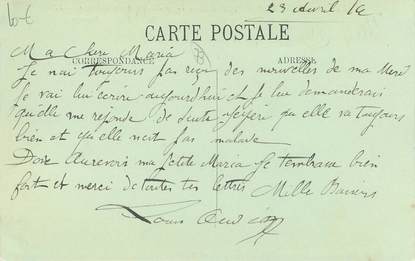 23 Avril
CARTE POSTALE
CORRESPONDANCE
ADRESSE
Ma Cher Maria
Je nai toujours pas reçu des nouvelles de ma Mère
Je vai lui écrire aujourdhui et je lui demanderais
quelle me reponde de suite j'espère qu'elle va toujours
bien et qu'elle neit pas malade
Donc Aurevoir ma petite Maria Je tembrasse bien
fort et merci de toutes tes lettres Mille Baisers
Louis